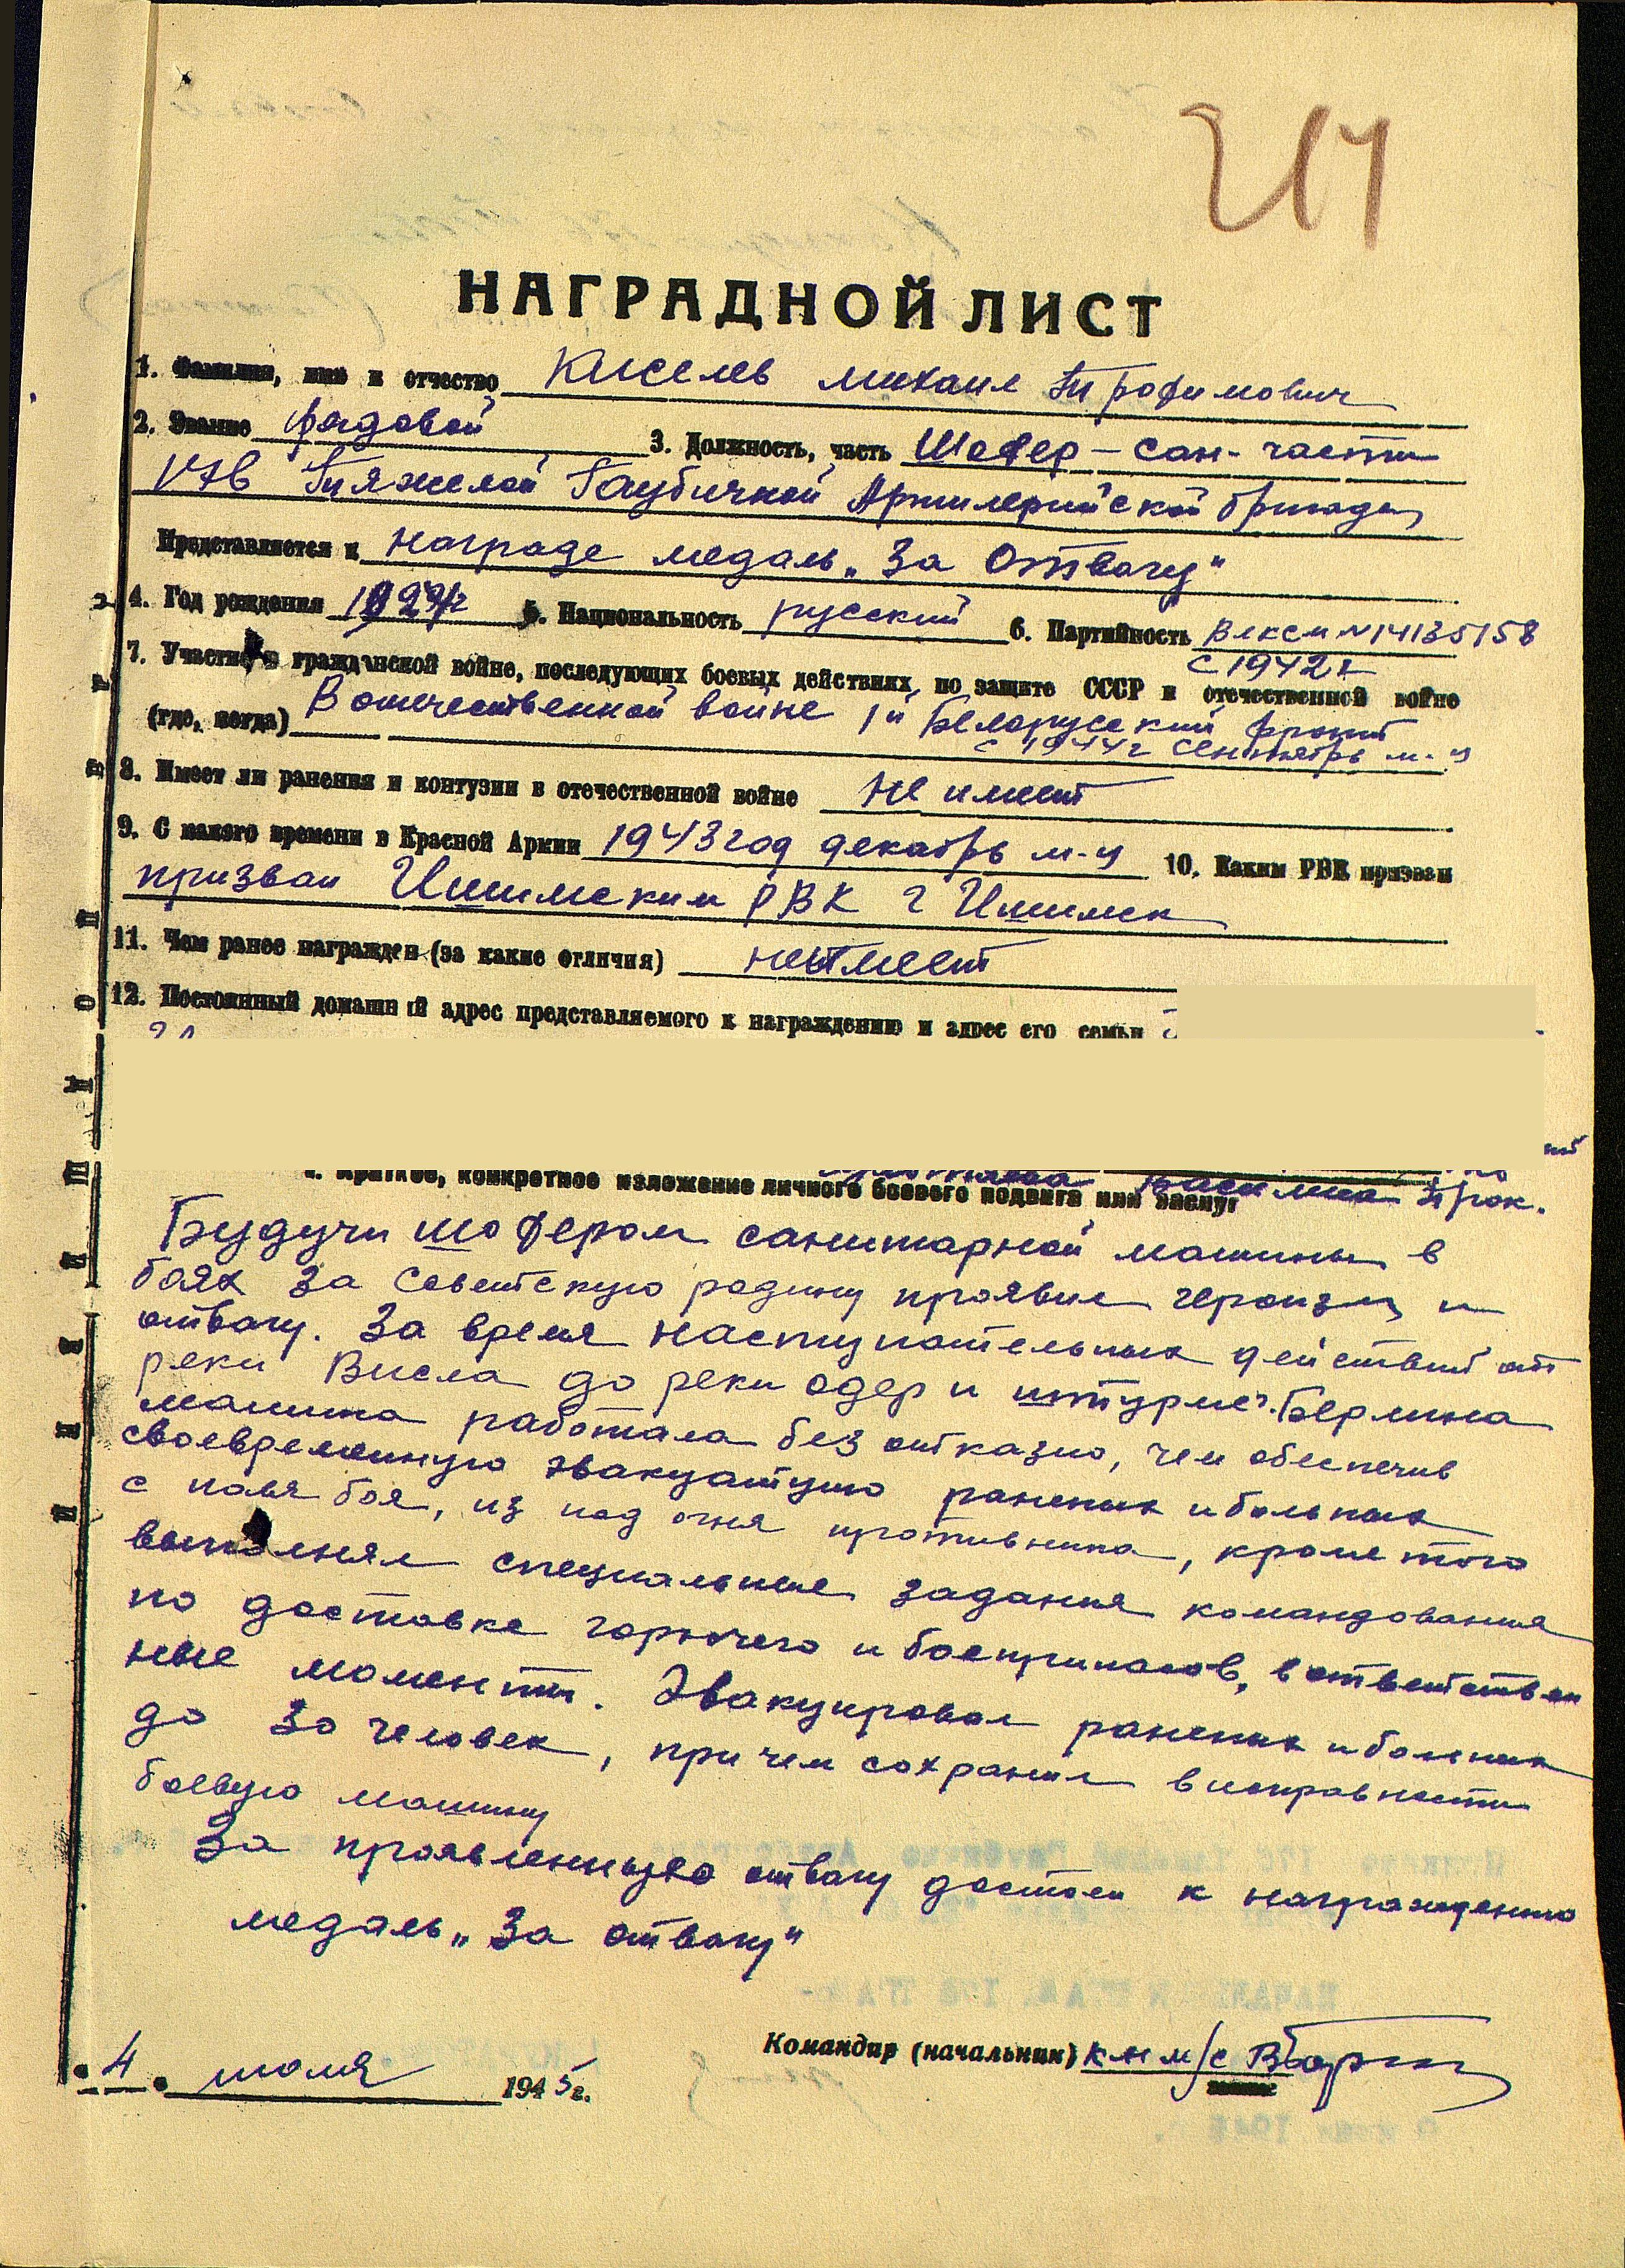 217
НАГРАДНОЙ ЛИСТ
1. Фамилия, имя и отчество Киселев Михаил Трофимович
2. Звание рядовой 3. Должность, часть Шофер - сан. части
176 Тяжелой Гаубичной Артилерийской бригады
Представляется к награде медаль „За Отвагу"
4. Год рождения 5. Национальность русский 6. Партийность ВЛКСМ №14135158
с 1942г
7. Участие в гражданской войне, последующих боевых действиях по защите СССР и отечественной войне
(где, когда) В отечественной войне 1й Белоруский фронт
с 1944г сентябрь м-ц
8. Имеет ли ранения и контузии в отечественной войне не имеет
9. С какого времени в Красной Армии 1943 год декабрь м-ц 10. Каким РВК призван
призван Ишимским РВК г Ишимск
11. Чем ранее награжден (за какие отличия) не имеет
12. Постоянный домашний адрес представляемого к награждению и адрес его семьи
Краткое, конкретное изложение личного боевого подвига или заслуг
Будучи шофером санитарной машины в
боях за Советскую родину проявил героизм и
отвагу. За время наступательных действий от
реки Висла до реки Одер и штурме г. Берлина
машина работала без отказно, чем обеспечив
своевременную эвакуатцию раненых и больных
с поля боя, из под огня противника, кроме того
выполнял специальные задания командования
по доставке горючего и боеприпасов, в ответствен
ные моменты. Эвакуировал раненых и больных
до 30 человек, при чем сохранил в исправности
боевую машину
За проявленную отвагу достоен к награждению
медаль „За отвагу"
Командир (начальник)
"4" июля 1945 г.